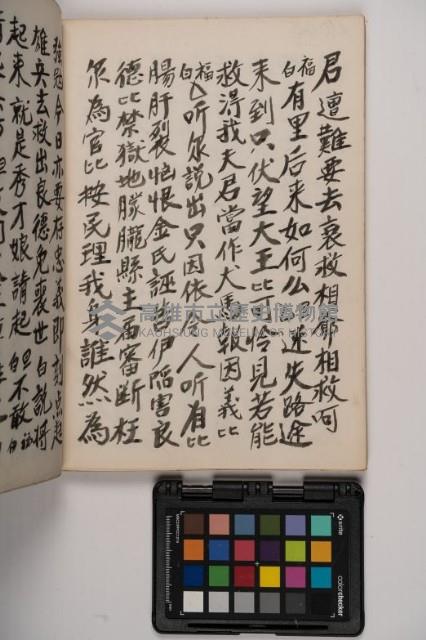 君遭難要去哀救相耶相救呵
福白有里后来如何么 迷失路途
来到只伏望大王比可怜見若能
救得我夫君當作犬馬報因義比
福白 听尔説出只因依 人听有比
腸肝裂怕恨金氏誣 伊陷害良
德比禁獄地朦朧縣主 審斷枉
尔為官比按民理我 誰然為
强冠今日亦要存忠義即刻点起
雄兵去救出良德免喪世白説將
起来就是秀才娘請起 旦不敢
高雄市立歷史博物館
KAOHSIUNG MUSEUM OF HISTORY
x-rite
colorchecker